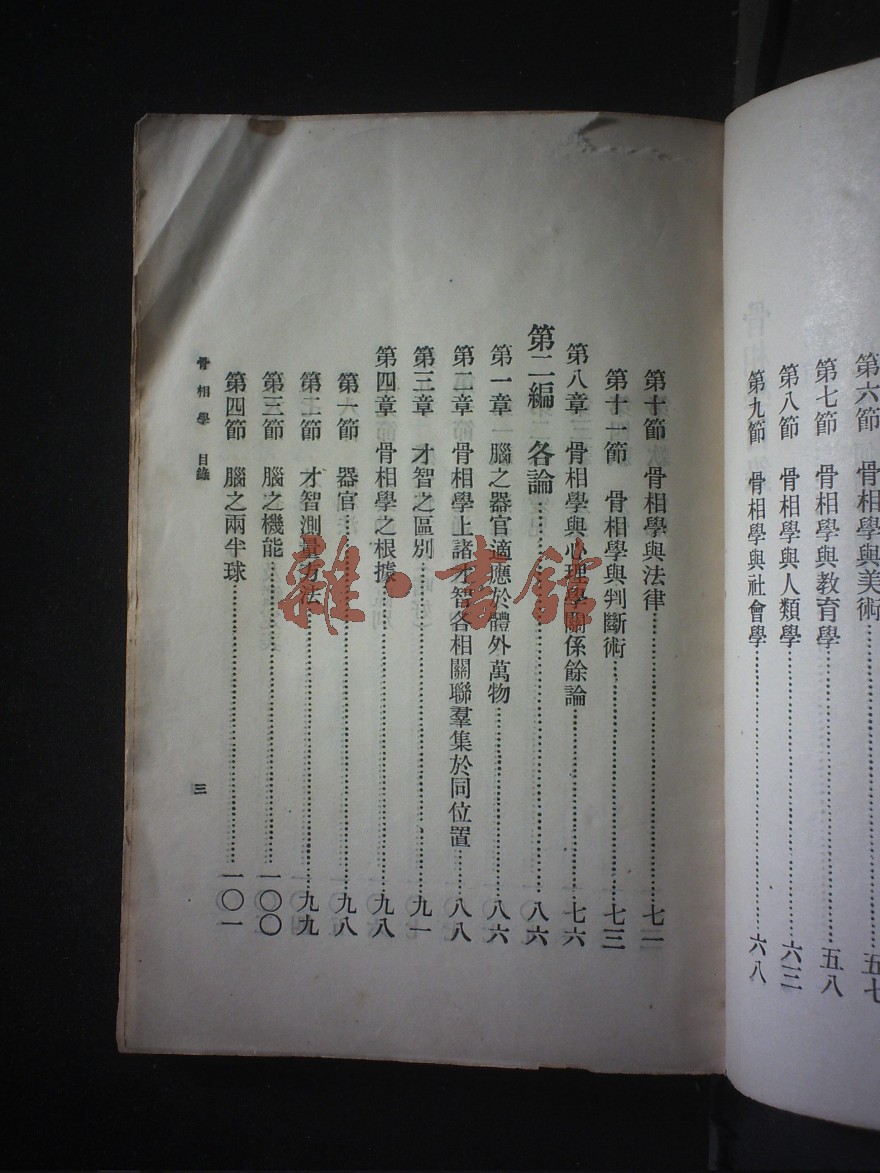 第六節 骨相學與美術……五七
第七節 骨相學與教育學……五八
第八節 骨相學與人類學……六三
第九節 骨相學與社會學……六八
第十節 骨相學與法律……七一
第十一節 骨相學與判斷術……七三
第八章 骨相學與心理學關係餘論……七六
第二編 各論……八六
第一章 腦之器官適應於體外萬物……八六
第二章 骨相學上諸才智各相關聯羣集於同位置……八八
第三章 才智之區別……九一
第四章 骨相學之根據……九八
第一節 器官……九八
第二節 才智測量方法……九九
第三節 腦之機能……一〇〇
第四節 腦之兩半球……一〇一
骨相學 目錄
三
雜·書館